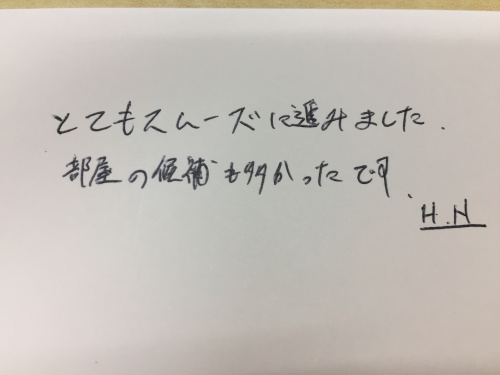 とてもスムーズに進みました.
部屋の候補も多かったです.
H.N